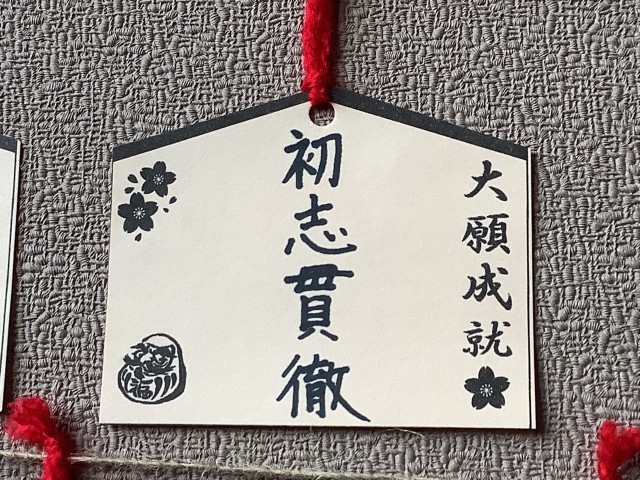 大願成就
初志貫徹
福